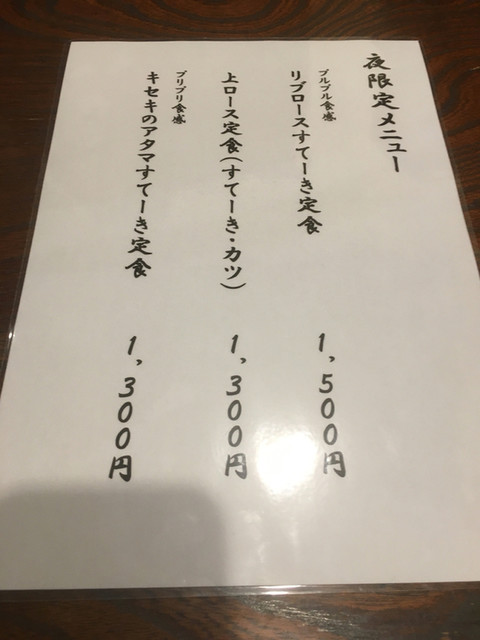 夜限定メニュー
プルプル食感
リブロースすてーき定食
1,500円
上ロース定食(すてーき・カツ)
1,300円
プリプリ食感
キセキのアタマすてーき定食
1,300円